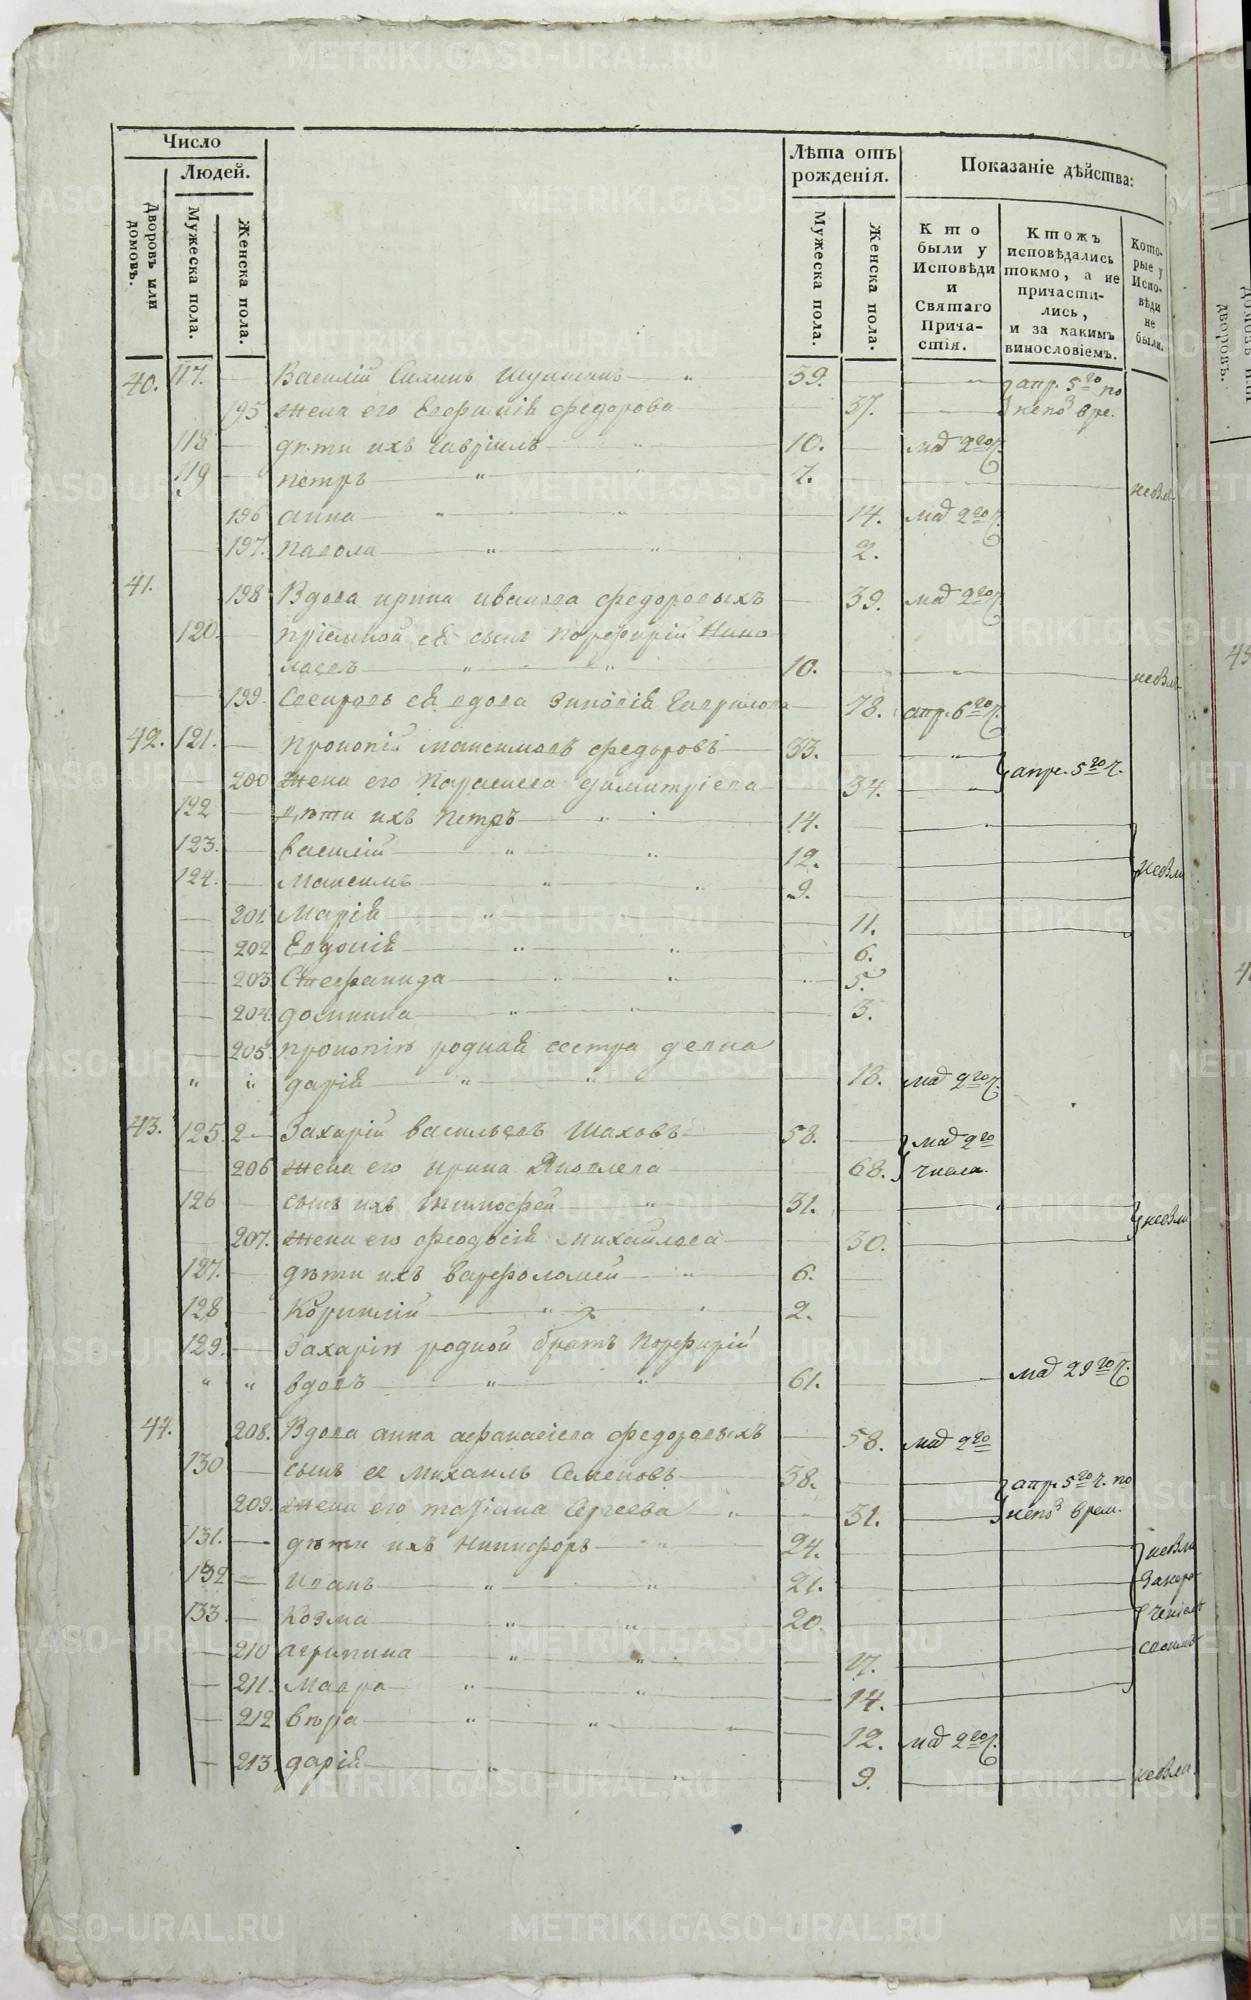 Число
Людей.
Дворовъ или домовъ.
Мужеска пола.
Женска пола.
Лѣта отъ рожденія.
Мужеска пола.
Женска пола.
Показаніе дѣйства:
Кто были у Исповѣди и Святаго Причастія.
Ктожъ исповѣдались токмо, а не причастились, и за какимъ винословіемъ.
Которые у Исповѣди не были.
40. 117. — Василій Силинъ — 39. — апр. 5го по
195 жена его Евфимія Федорова — 37. — вре.
118 — дѣти ихъ Гавріилъ — 10. — 9го
119 — Петръ — 7. — невли
196 Анна — 14. 9го
197. Павола — 2.
41. 198 Вдова Ирина Иванова Федоровыхъ — 39. 9го
120. — Пріемной ея сынъ Порфирій Нико
лаевъ — 10. — невли
199 Свекровь ея вдова Зиновія Гаврилова — 78. апр. 6го ч.
42. 121. — Прокопій Максимовъ Федоровъ — 33. —
200 жена его Параскева Димитріева — 34. — апре. 5го ч.
122 — дѣти ихъ Петръ — 14. —
123. — Василій — 12. —
124. — Максимъ — 9. — невли
201. Марія — 11. —
202 Евдокія — 6.
203 Стефанида — 5.
204. Домника — 3.
205. Прокопія родная сестра девка
Дарія — 18. 9го ч.
43. 125. 2 — Захарій Васильевъ Шаховъ — 58. — 9го
206 жена его Ирина Яковлева — 68. числа.
126 — сынъ ихъ Тимофей — 31. —
207. жена его Феодосія Михайлова — 30. — невли
127. — дѣти ихъ Варфоломей — 6. —
128 — Корнилій — 2. —
129. — Захарія родной братъ Порфирій
вдовъ — 61. — 29го ч.
44. 208. Вдова Анна Афанасіева Федоровыхъ — 58. 9го
130 — сынъ ея Михаилъ Семеновъ — 38. — апр. 5го ч. по
209. жена его Татіана Сергеева — 31. — врем.
131. — дѣти ихъ Никифоръ — 24. — невли
132 — Иванъ — 21. —
133. — Козма — 20. —
210 Агрипина — 17. —
211. Мавра — 14. —
212 Вѣра — 12. 9го ч.
213. Дарія — 9. — невли
METRIKI.GASO-URAL.RU